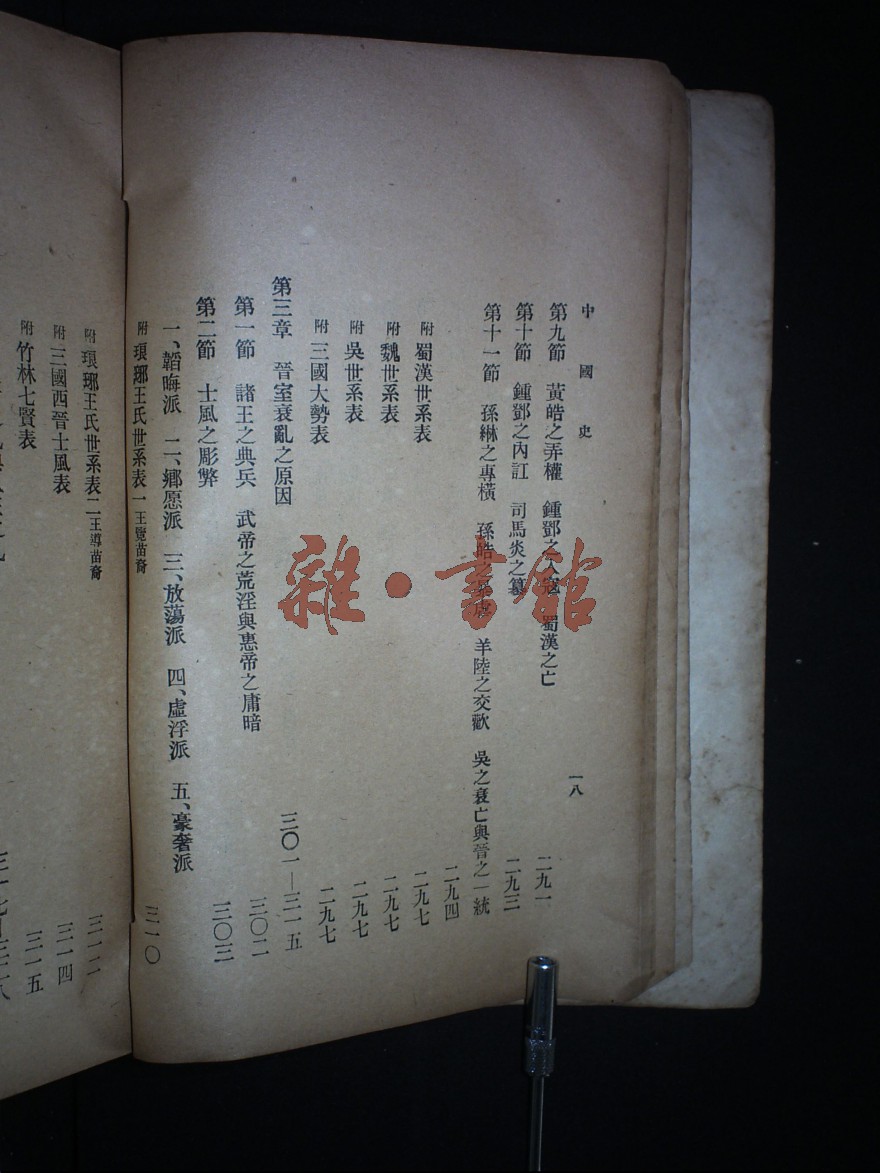 中國史
一八
第九節　黃皓之弄權　鍾鄧之入寇　蜀漢之亡
二九一
第十節　鍾鄧之內訌　司馬炎之篡
二九三
第十一節　孫綝之專橫　孫皓之暴虐　羊陸之交歡　吳之衰亡與晉之一統
二九四
附 蜀漢世系表
二九七
附 魏世系表
二九七
附 吳世系表
二九七
附 三國大勢表
二九七
第三章　晉室衰亂之原因
三〇一—三一五
第一節　諸王之典兵　武帝之荒淫與惠帝之庸暗
三〇二
第二節　士風之彫弊
三〇三
一、韜晦派　二、鄉愿派　三、放蕩派　四、虛浮派　五、豪奢派
附 瑯琊王氏世系表一 王覽苗裔
三一〇
附 瑯琊王氏世系表二 王導苗裔
三一二
附 三國西晉士風表
三一四
附 竹林七賢表
三一五
雜·書館